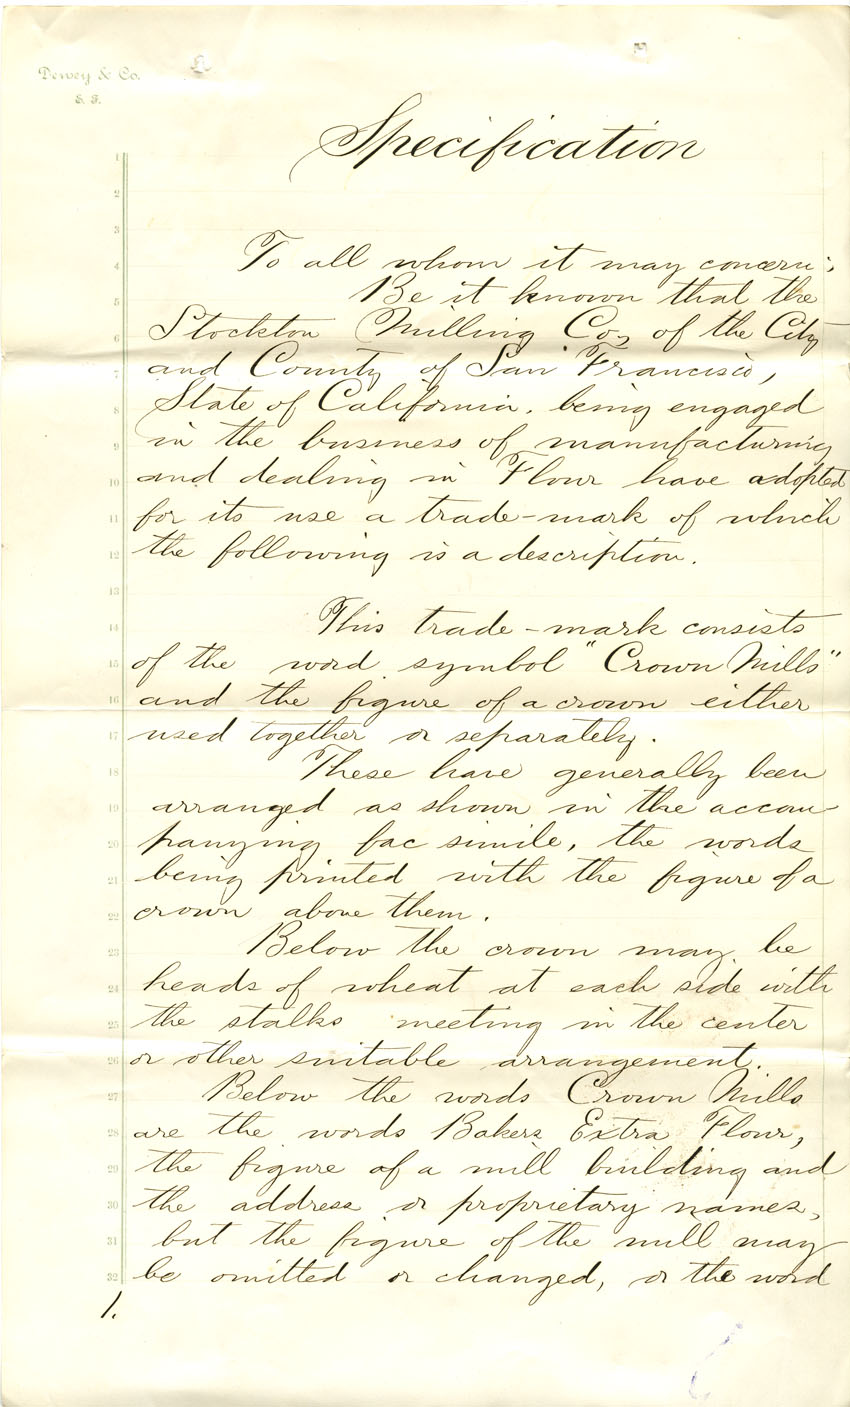 Dewey & Co.
S. F.
Specification
1
2
3
4 To all whom it may concern;
5 Be it known that the
6 Stockton Milling Co, of the City
7 and County of San Francisco,
8 State of California. being engaged
9 in the business of manufacturing
10 and dealing in Flour have adopted
11 for its use a trade-mark of which
12 the following is a description.
13
14 This trade-mark consists
15 of the word symbol "Crown Mills"
16 and the figure of a crown either
17 used together or separately.
18 These have generally been
19 arranged as shown in the accom-
20 panying fac simile, the words
21 being printed with the figure of a
22 crown above them.
23 Below the crown may be
24 heads of wheat at each side with
25 the stalks meeting in the center
26 or other suitable arrangement.
27 Below the words Crown Mills
28 are the words Bakers Extra Flour,
29 the figure of a mill building and
30 the address or proprietary names,
31 but the figure of the mill may
32 be omitted or changed, or the word
1.